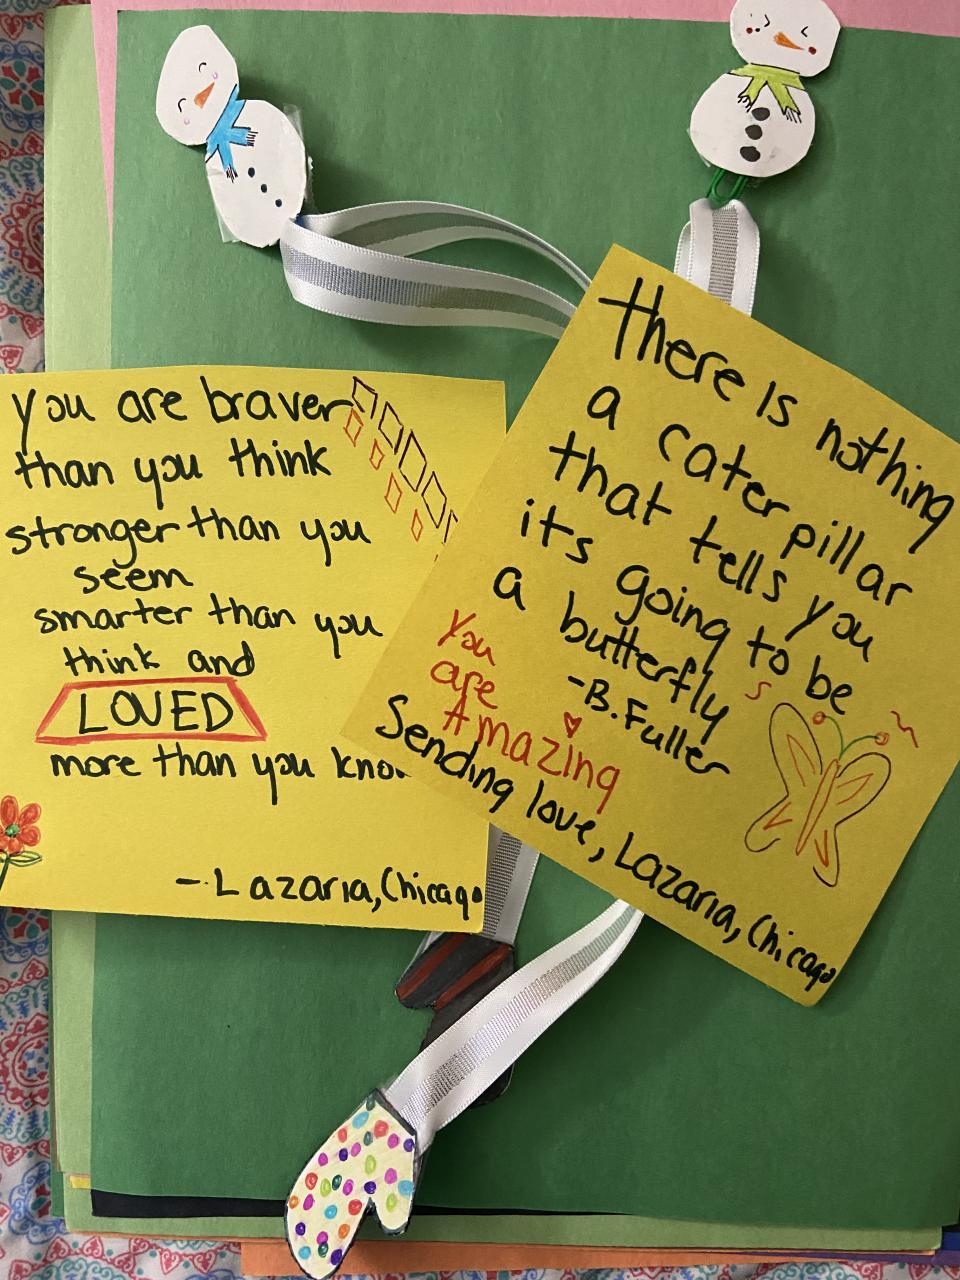 you are braver
than you think
stronger than you
seem
smarter than you
think and
LOVED
more than you
- Lazaria, Chicago
There is nothing
a caterpillar
that tells you
it's going to be
a butterfly
-B. Fuller
you
are
Amazing
Sending love, Lazaria, Chicago